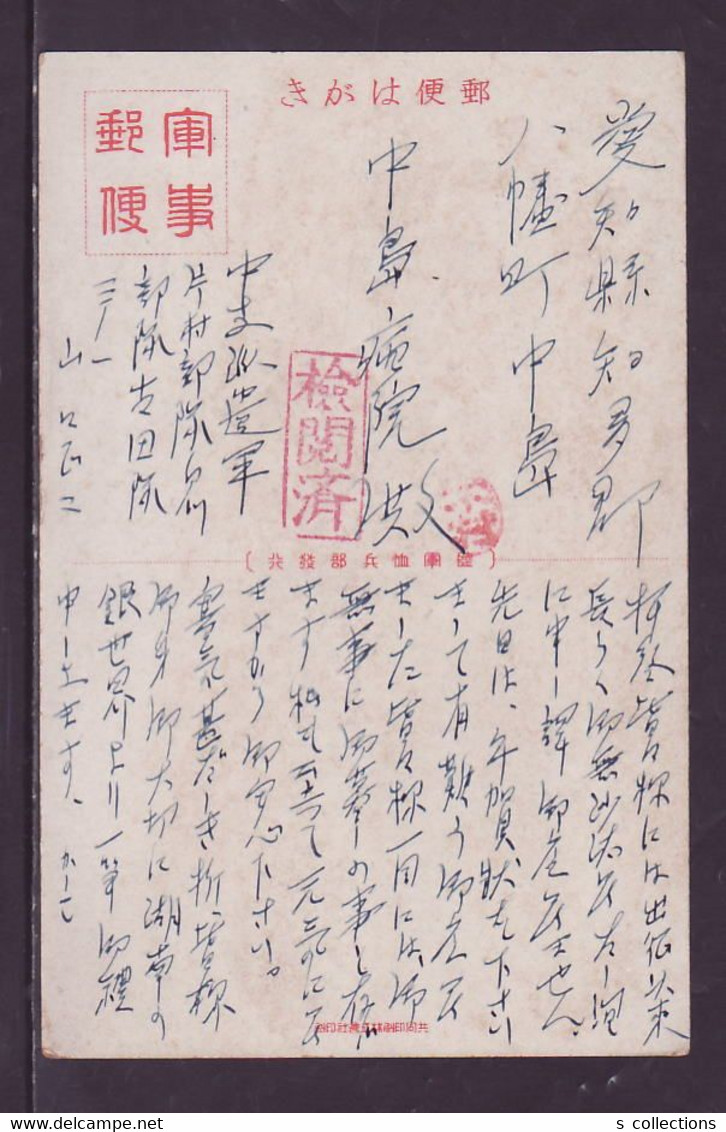 郵便はがき
軍事
郵便
愛知縣知多郡
八幡町中島
中島病院 殿
中支派遣軍
片村部隊
部隊吉田隊
山口正二
檢閱済
(陸軍恤兵部發行)
拝啓皆々様には出征以来
長らく御無沙汰致し
に申し譯御座居ません、
先日は、年賀状を下さい
まして有難う御座居
ました皆々様一同には、御
無事に御暮しの事と存じ
ます私も至って元気に居
ますから御安心下さい。
寒気甚だしき折、皆様
御身御大切に湖南の
銀世界より一筆御禮
申し上ます、
共同印刷株式會社印刷
s collections